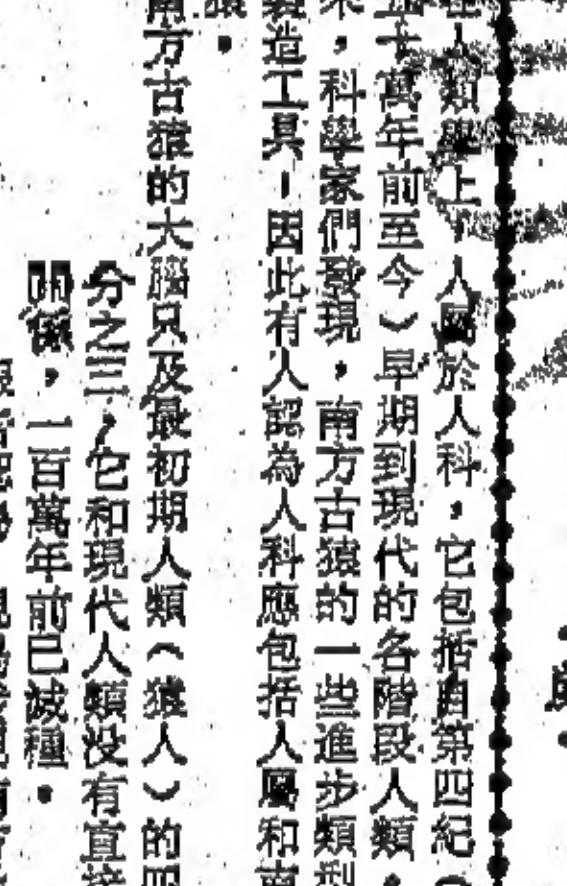 在人類學上，人屬於人科，它包括自第四紀（
五十萬年前至今）早期到現代的各階段人類，
來，科學家們發現，南方古猿的一些進步類型
製造工具，因此有人認為人科應包括人屬和南
猿。
南方古猿的大腦只及最初期人類（猿人）的四
分之三，它和現代人類没有直接
關係，一百萬年前已滅種。